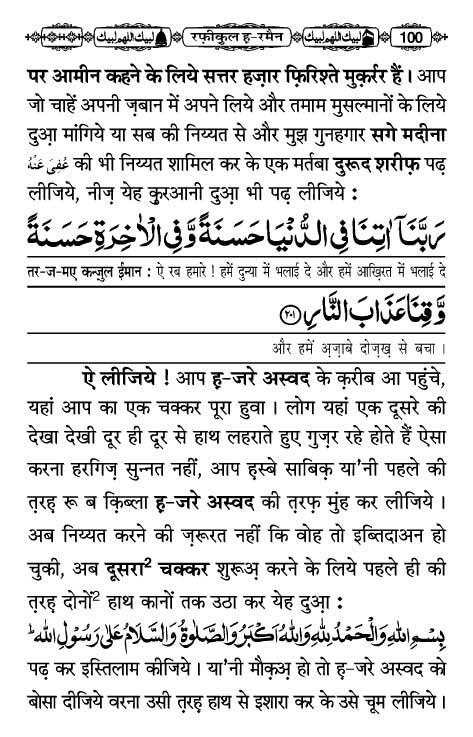 لبيك اللهم لبيك रफ़ीकुल ह-रमैन لبيك اللهم لبيك 100
पर आमीन कहने के लिये सत्तर हज़ार फ़िरिश्ते मुक़र्रर हैं। आप
जो चाहें अपनी ज़बान में अपने लिये और तमाम मुसल्मानों के लिये
दुआ़ मांगिये या सब की निय्यत से और मुझ गुनहगार सगे मदीना
عُفِىَ عَنْهُ की भी निय्यत शामिल कर के एक मर्तबा दुरूद शरीफ़ पढ़
लीजिये, नीज़ येह क़ुरआनी दुआ़ भी पढ़ लीजिये :
رَبَّنَاۤ اٰتِنَا فِى الدُّنْيَا حَسَنَةً وَّفِى الْاٰخِرَةِ حَسَنَةً
तर-ज-मए कन्ज़ुल ईमान : ऐ रब हमारे ! हमें दुन्या में भलाई दे और हमें आख़िरत में भलाई दे
وَّقِنَا عَذَابَ النَّارِ ﴿۲۰۱﴾
और हमें अ़ज़ाबे दोज़ख़ से बचा ।
ऐ लीजिये ! आप ह-जरे अस्वद के क़रीब आ पहुंचे,
यहां आप का एक चक्कर पूरा हुवा । लोग यहां एक दूसरे की
देखा देखी दूर ही दूर से हाथ लहराते हुए गुज़र रहे होते हैं ऐसा
करना हरगिज़ सुन्नत नहीं, आप ह़स्बे साबिक़ या'नी पहले की
त़रह़ रू ब क़िब्ला ह-जरे अस्वद की त़रफ़ मुंह कर लीजिये ।
अब निय्यत करने की ज़रूरत नहीं कि वोह तो इब्तिदाअन हो
चुकी, अब दूसरा² चक्कर शुरूअ़ करने के लिये पहले ही की
त़रह़ दोनों² हाथ कानों तक उठा कर येह दुआ़ :
بِسْمِ اللّٰهِ وَالْحَمْدُ لِلّٰهِ وَاللّٰهُ اَكْبَرُ وَالصَّلٰوةُ وَالسَّلَامُ عَلٰى رَسُوْلِ اللّٰهِ ؕ
पढ़ कर इस्तिलाम कीजिये । या'नी मौक़अ़ हो तो ह-जरे अस्वद को
बोसा दीजिये वरना उसी त़रह़ हाथ से इशारा कर के उसे चूम लीजिये ।